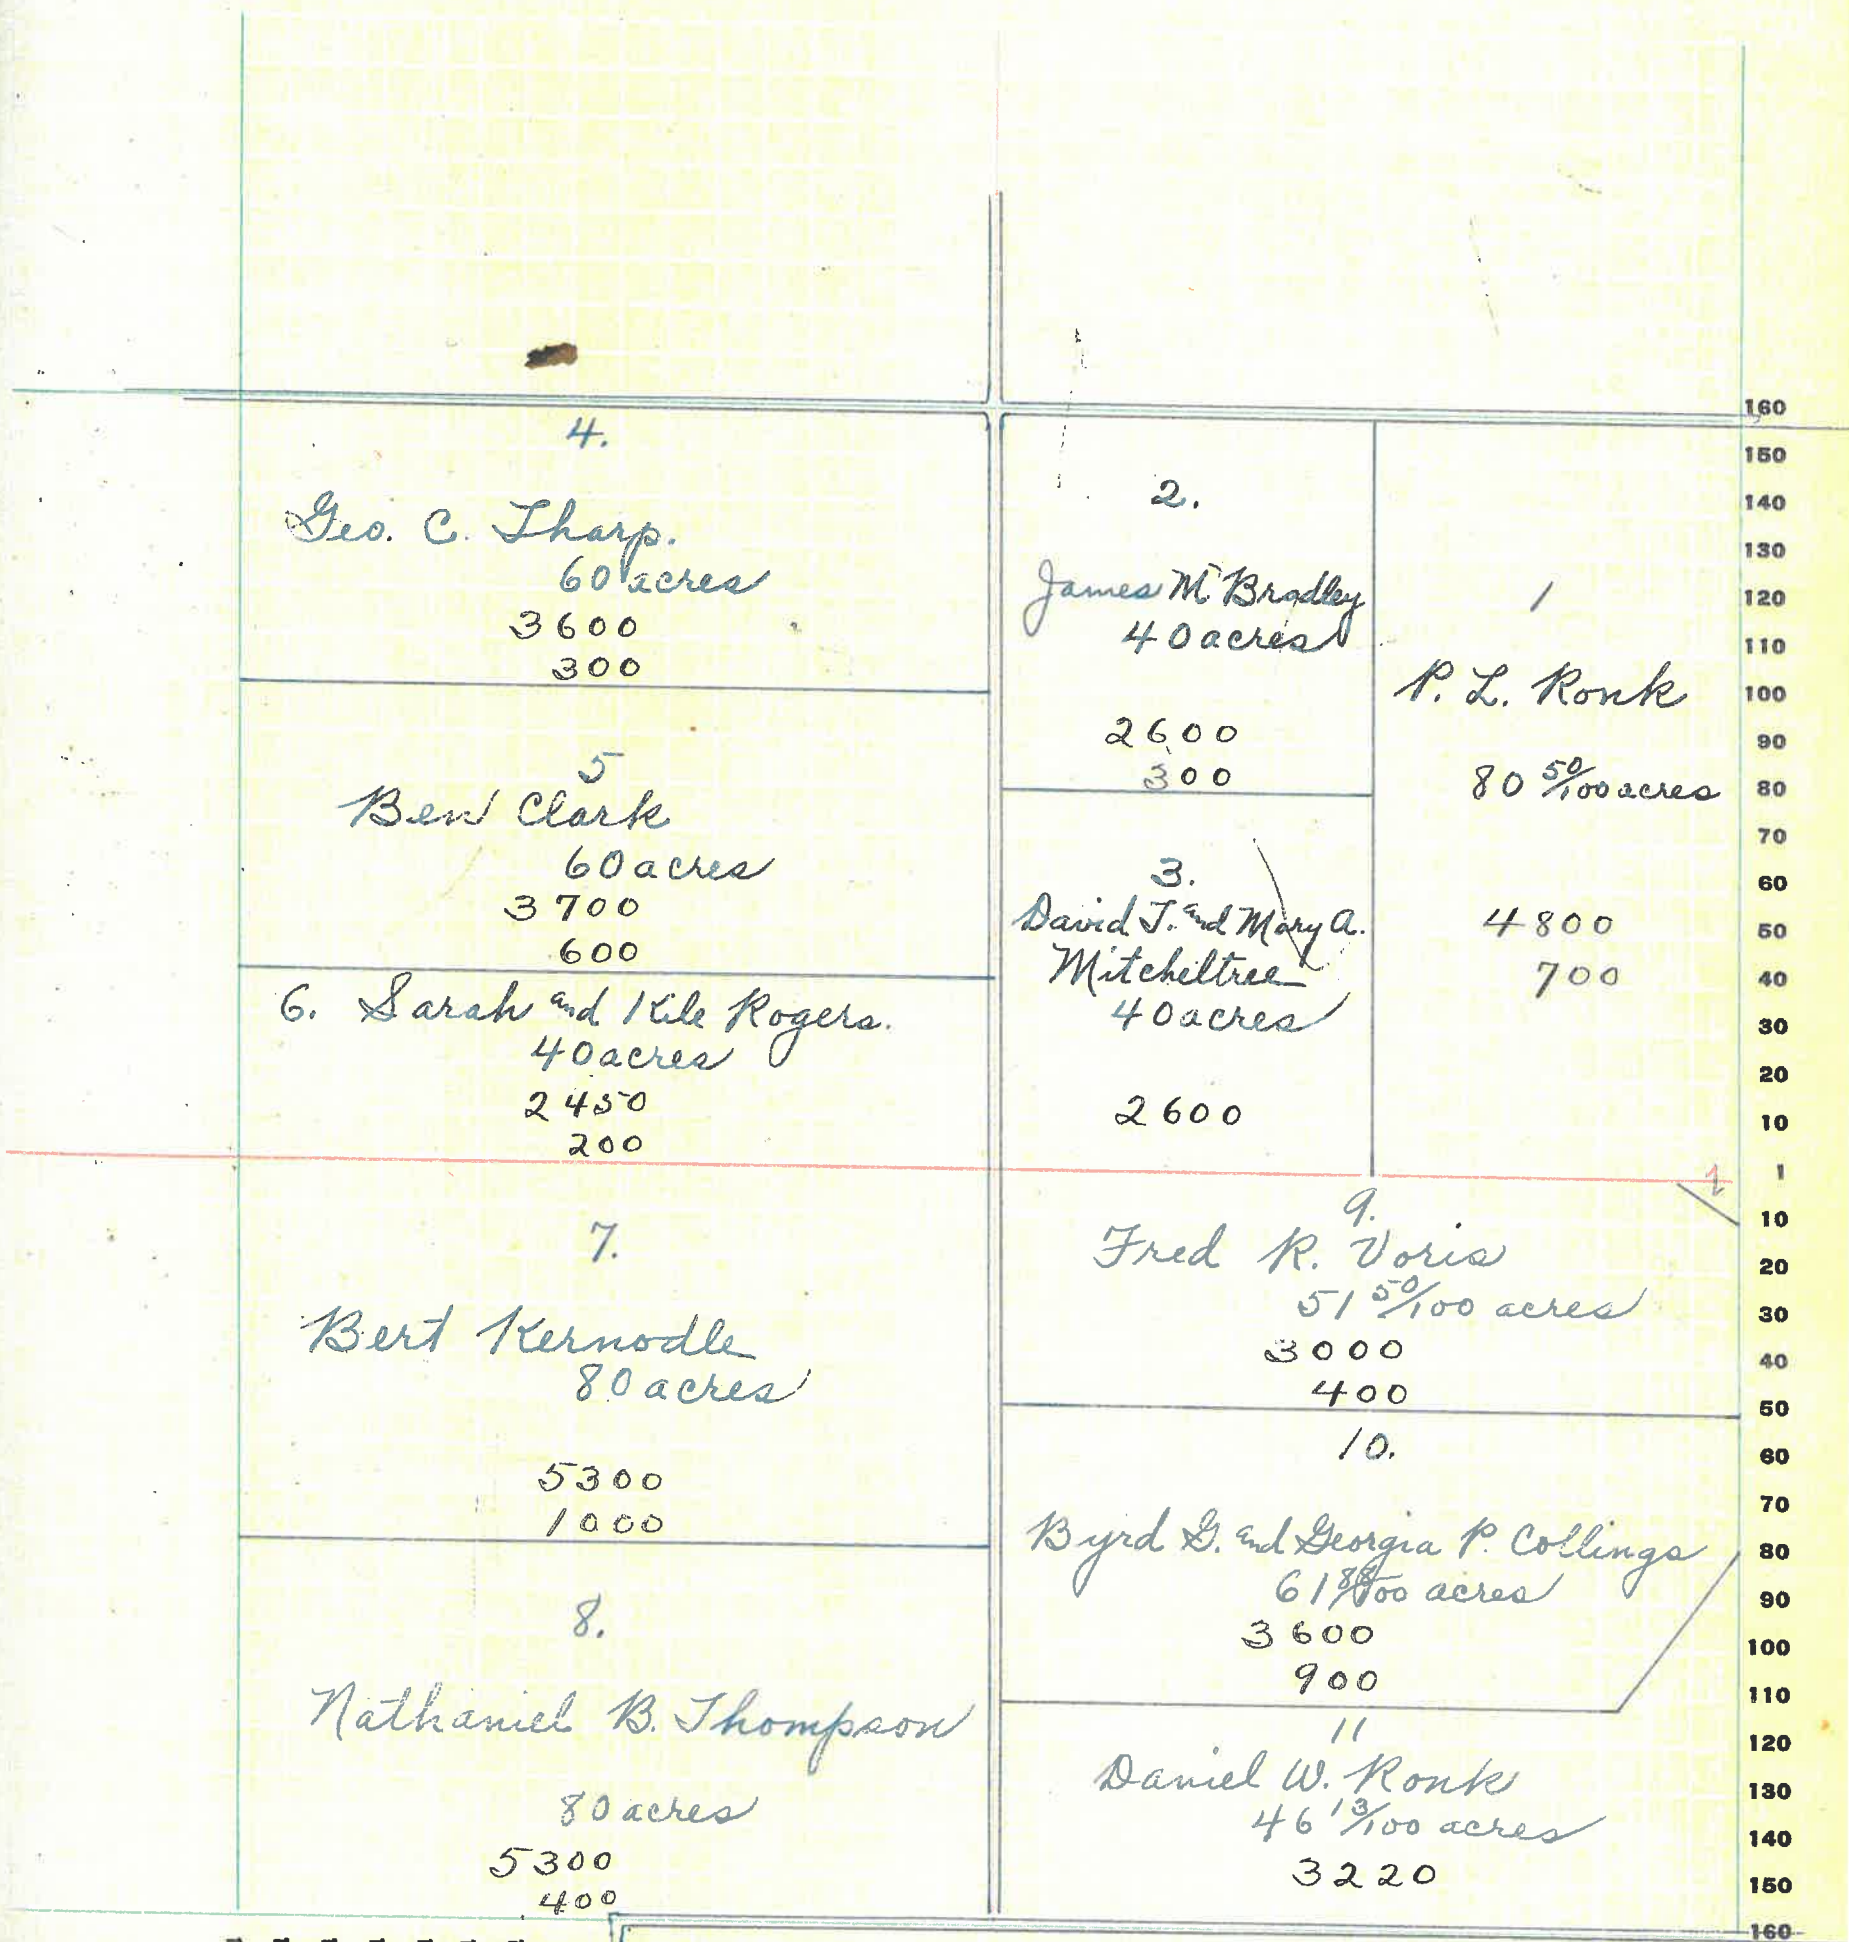 4.
Geo. C. Tharp.
60 acres
3600
300
5
Ben Clark
60 acres
3700
600
6. Sarah and Kile Rogers.
40 acres
2450
200
7.
Bert Kernodle
80 acres
5300
1000
8.
Nathaniel B. Thompson
80 acres
5300
400
2.
James M Bradley
40 acres
2600
300
3.
David T. and Mary A.
Mitcheltree
40 acres
2600
1
P. L. Ronk
80 50/100 acres
4800
700
9.
Fred R. Voris
51 50/100 acres
3000
400
10.
Byrd G. and Georgia P. Collings
61 88/100 acres
3600
900
11
Daniel W. Ronk
46 13/100 acres
3220
160
150
140
130
120
110
100
90
80
70
60
50
40
30
20
10
1
10
20
30
40
50
60
70
80
90
100
110
120
130
140
150
160